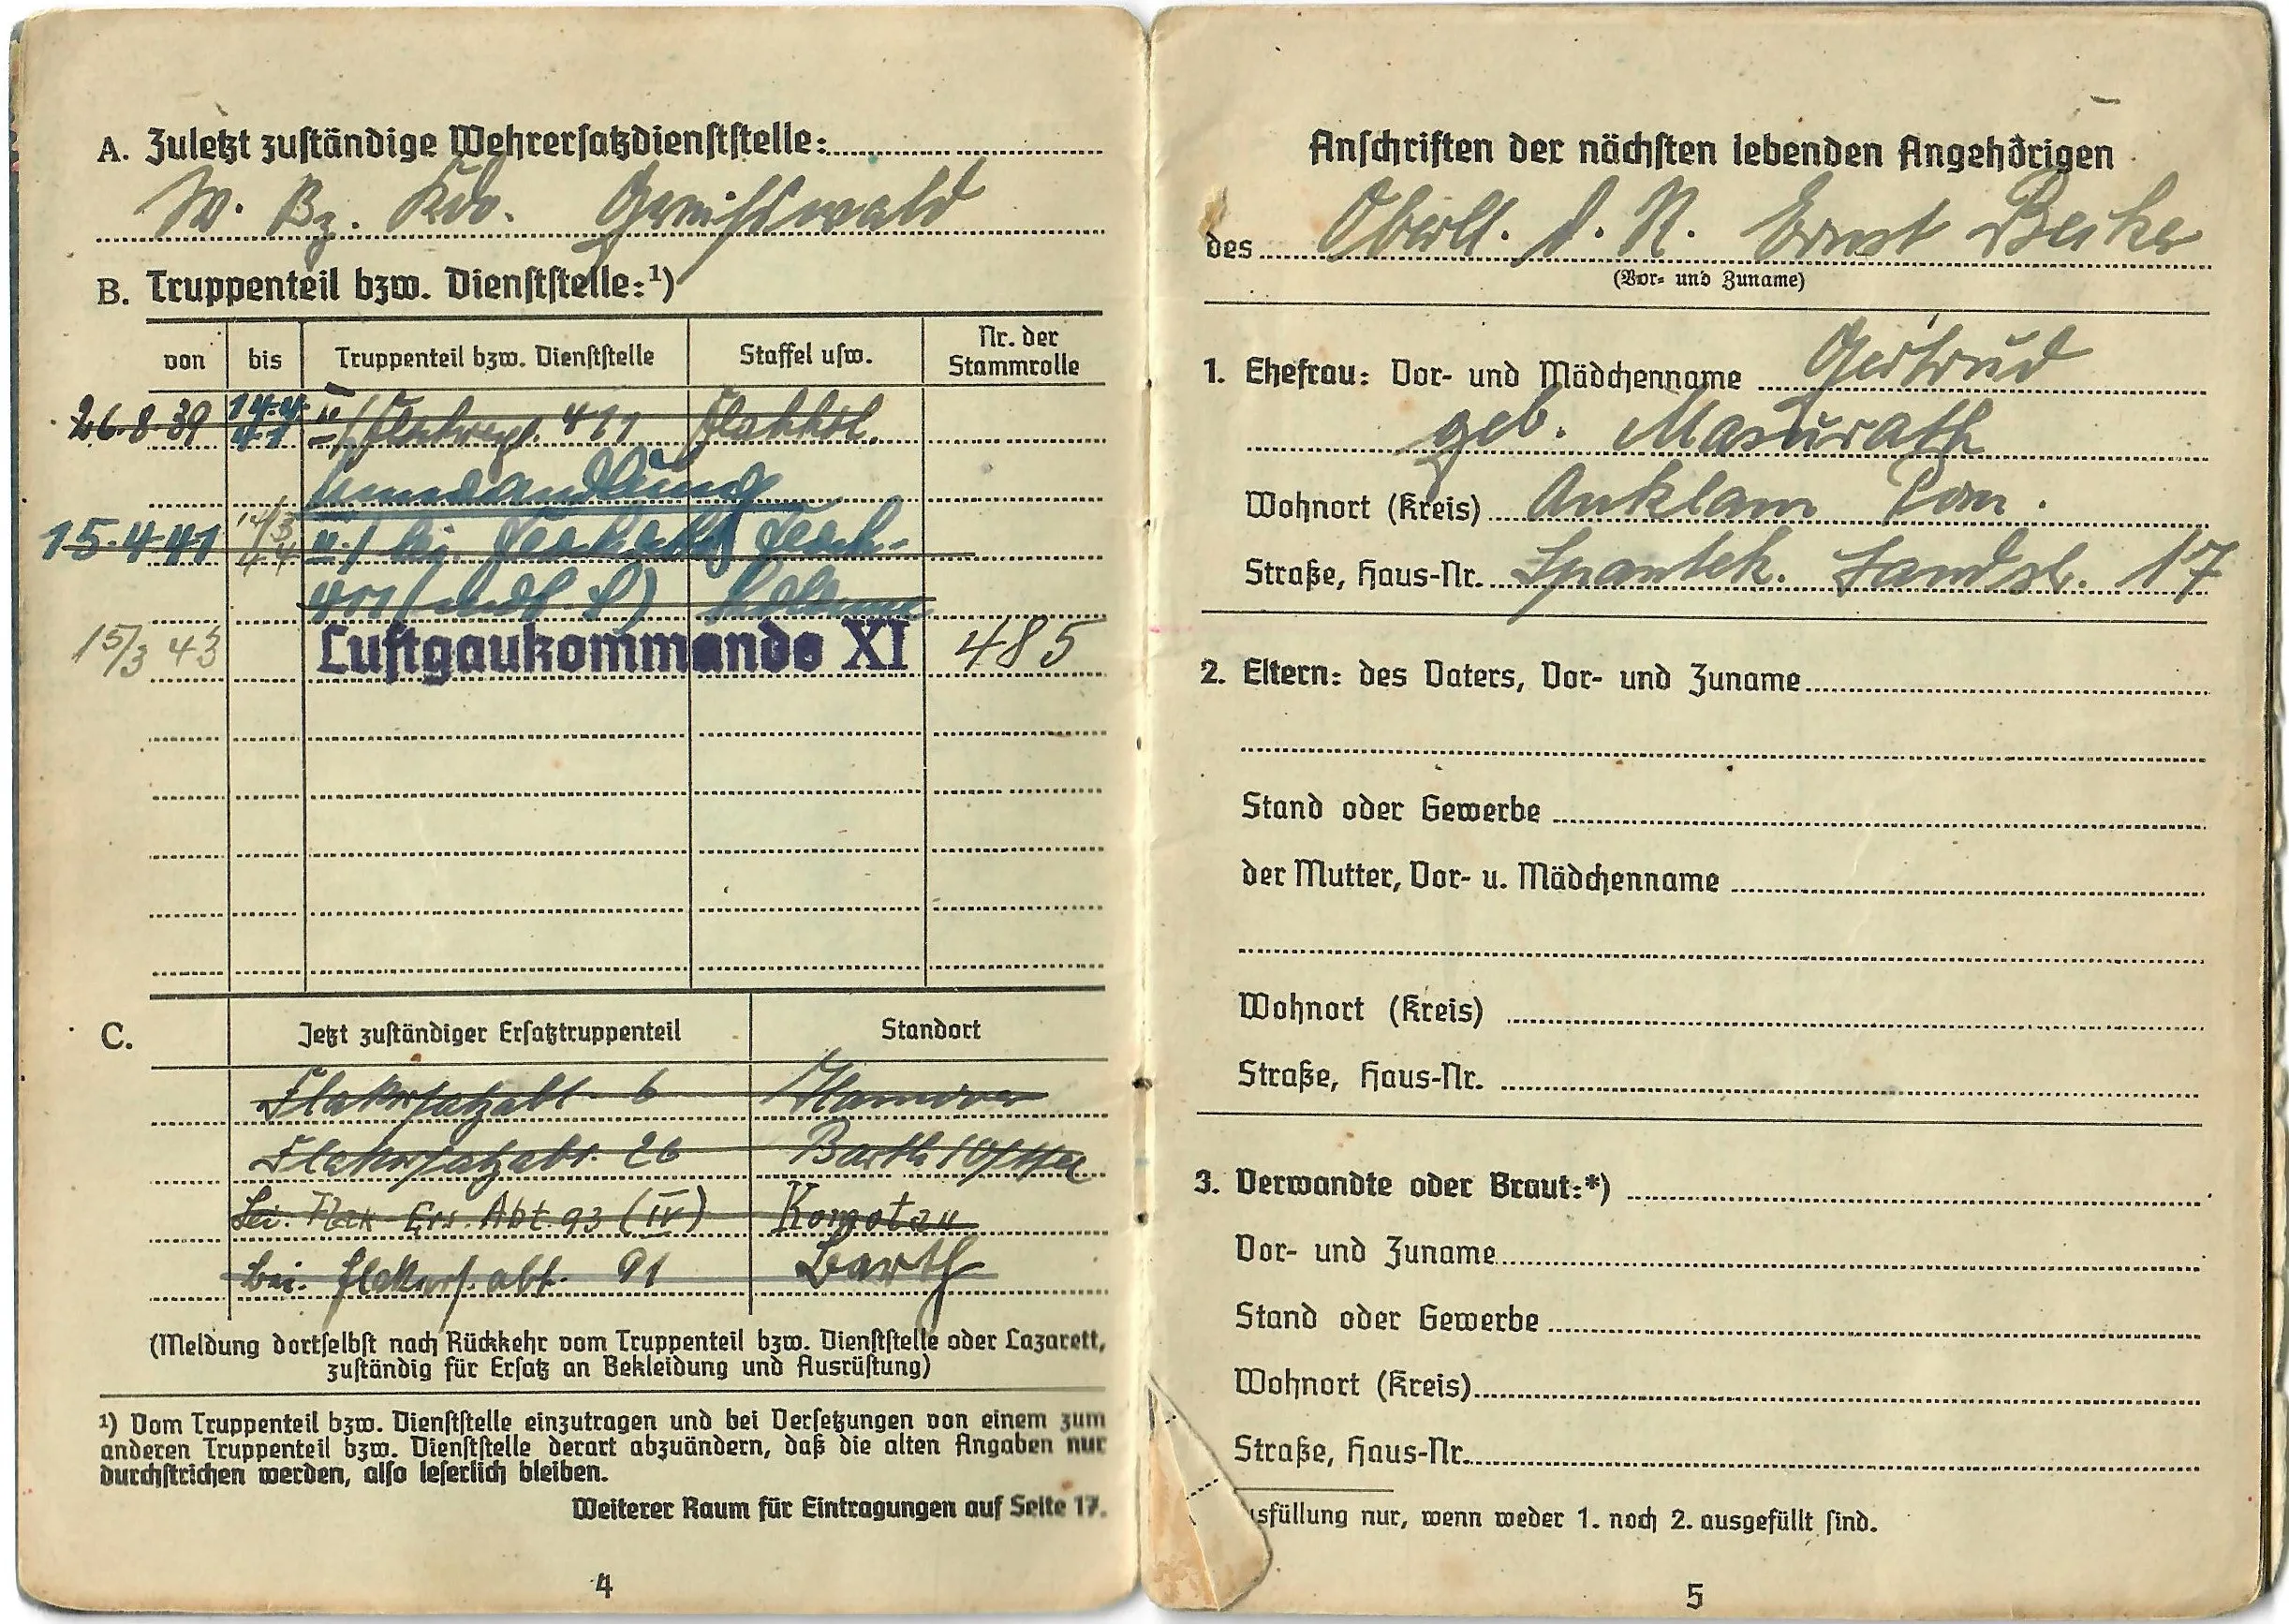 A. Zuletzt zuständige Wehrersatzdienststelle:
W. Bz. Kdo. Greifswald
B. Truppenteil bzw. Dienststelle:¹)
von bis Truppenteil bzw. Dienststelle Staffel usw. Nr. der Stammrolle
26.8.39 14.4.41 II/Flakregt. 411 Flakkol.
Umwandlung
15.4.41 14/3
15/3 43 Luftgaukommando XI 485
C. Jetzt zuständiger Ersatztruppenteil Standort
Flakersatzabt. 6 Hannover
Flakersatzabt. 26 Barth
Lei. Flak-Ers. Abt. 93 (IV) Komotau
lei. Flakers. abt. 91 Barth
(Meldung dortselbst nach Rückkehr vom Truppenteil bzw. Dienststelle oder Lazarett,
zuständig für Ersatz an Bekleidung und Ausrüstung)
¹) Vom Truppenteil bzw. Dienststelle einzutragen und bei Versetzungen von einem zum
anderen Truppenteil bzw. Dienststelle derart abzuändern, daß die alten Angaben nur
durchstrichen werden, also leserlich bleiben.
Weiterer Raum für Eintragungen auf Seite 17.
4
Anschriften der nächsten lebenden Angehörigen
des Oberlt. d. R. Ernst Becker
(Vor- und Zuname)
1. Ehefrau: Vor- und Mädchenname Gertrud
geb. Masurath
Wohnort (Kreis) Anklam Pom.
Straße, Haus-Nr. Spantek. Landstr. 17
2. Eltern: des Vaters, Vor- und Zuname
Stand oder Gewerbe
der Mutter, Vor- u. Mädchenname
Wohnort (Kreis)
Straße, Haus-Nr.
3. Verwandte oder Braut:*)
Vor- und Zuname
Stand oder Gewerbe
Wohnort (Kreis)
Straße, Haus-Nr.
sfüllung nur, wenn weder 1. noch 2. ausgefüllt sind.
5